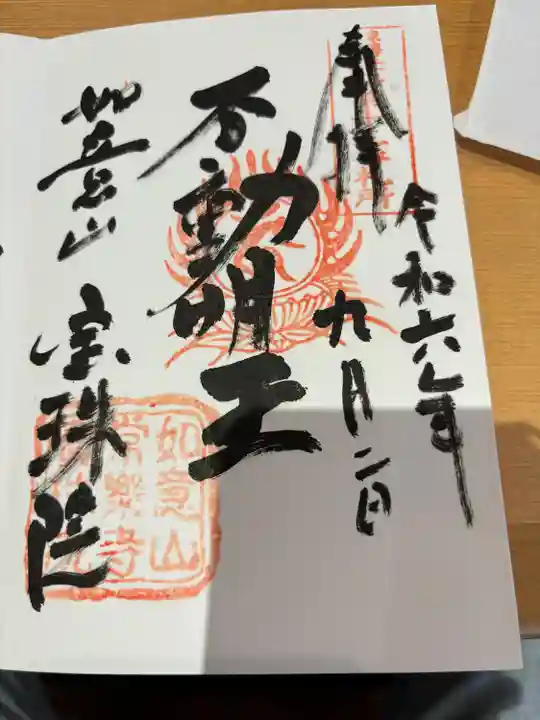 奉拝
令和六年
九月二日
不動明王
如意山
宝珠院
如意山
常楽寺